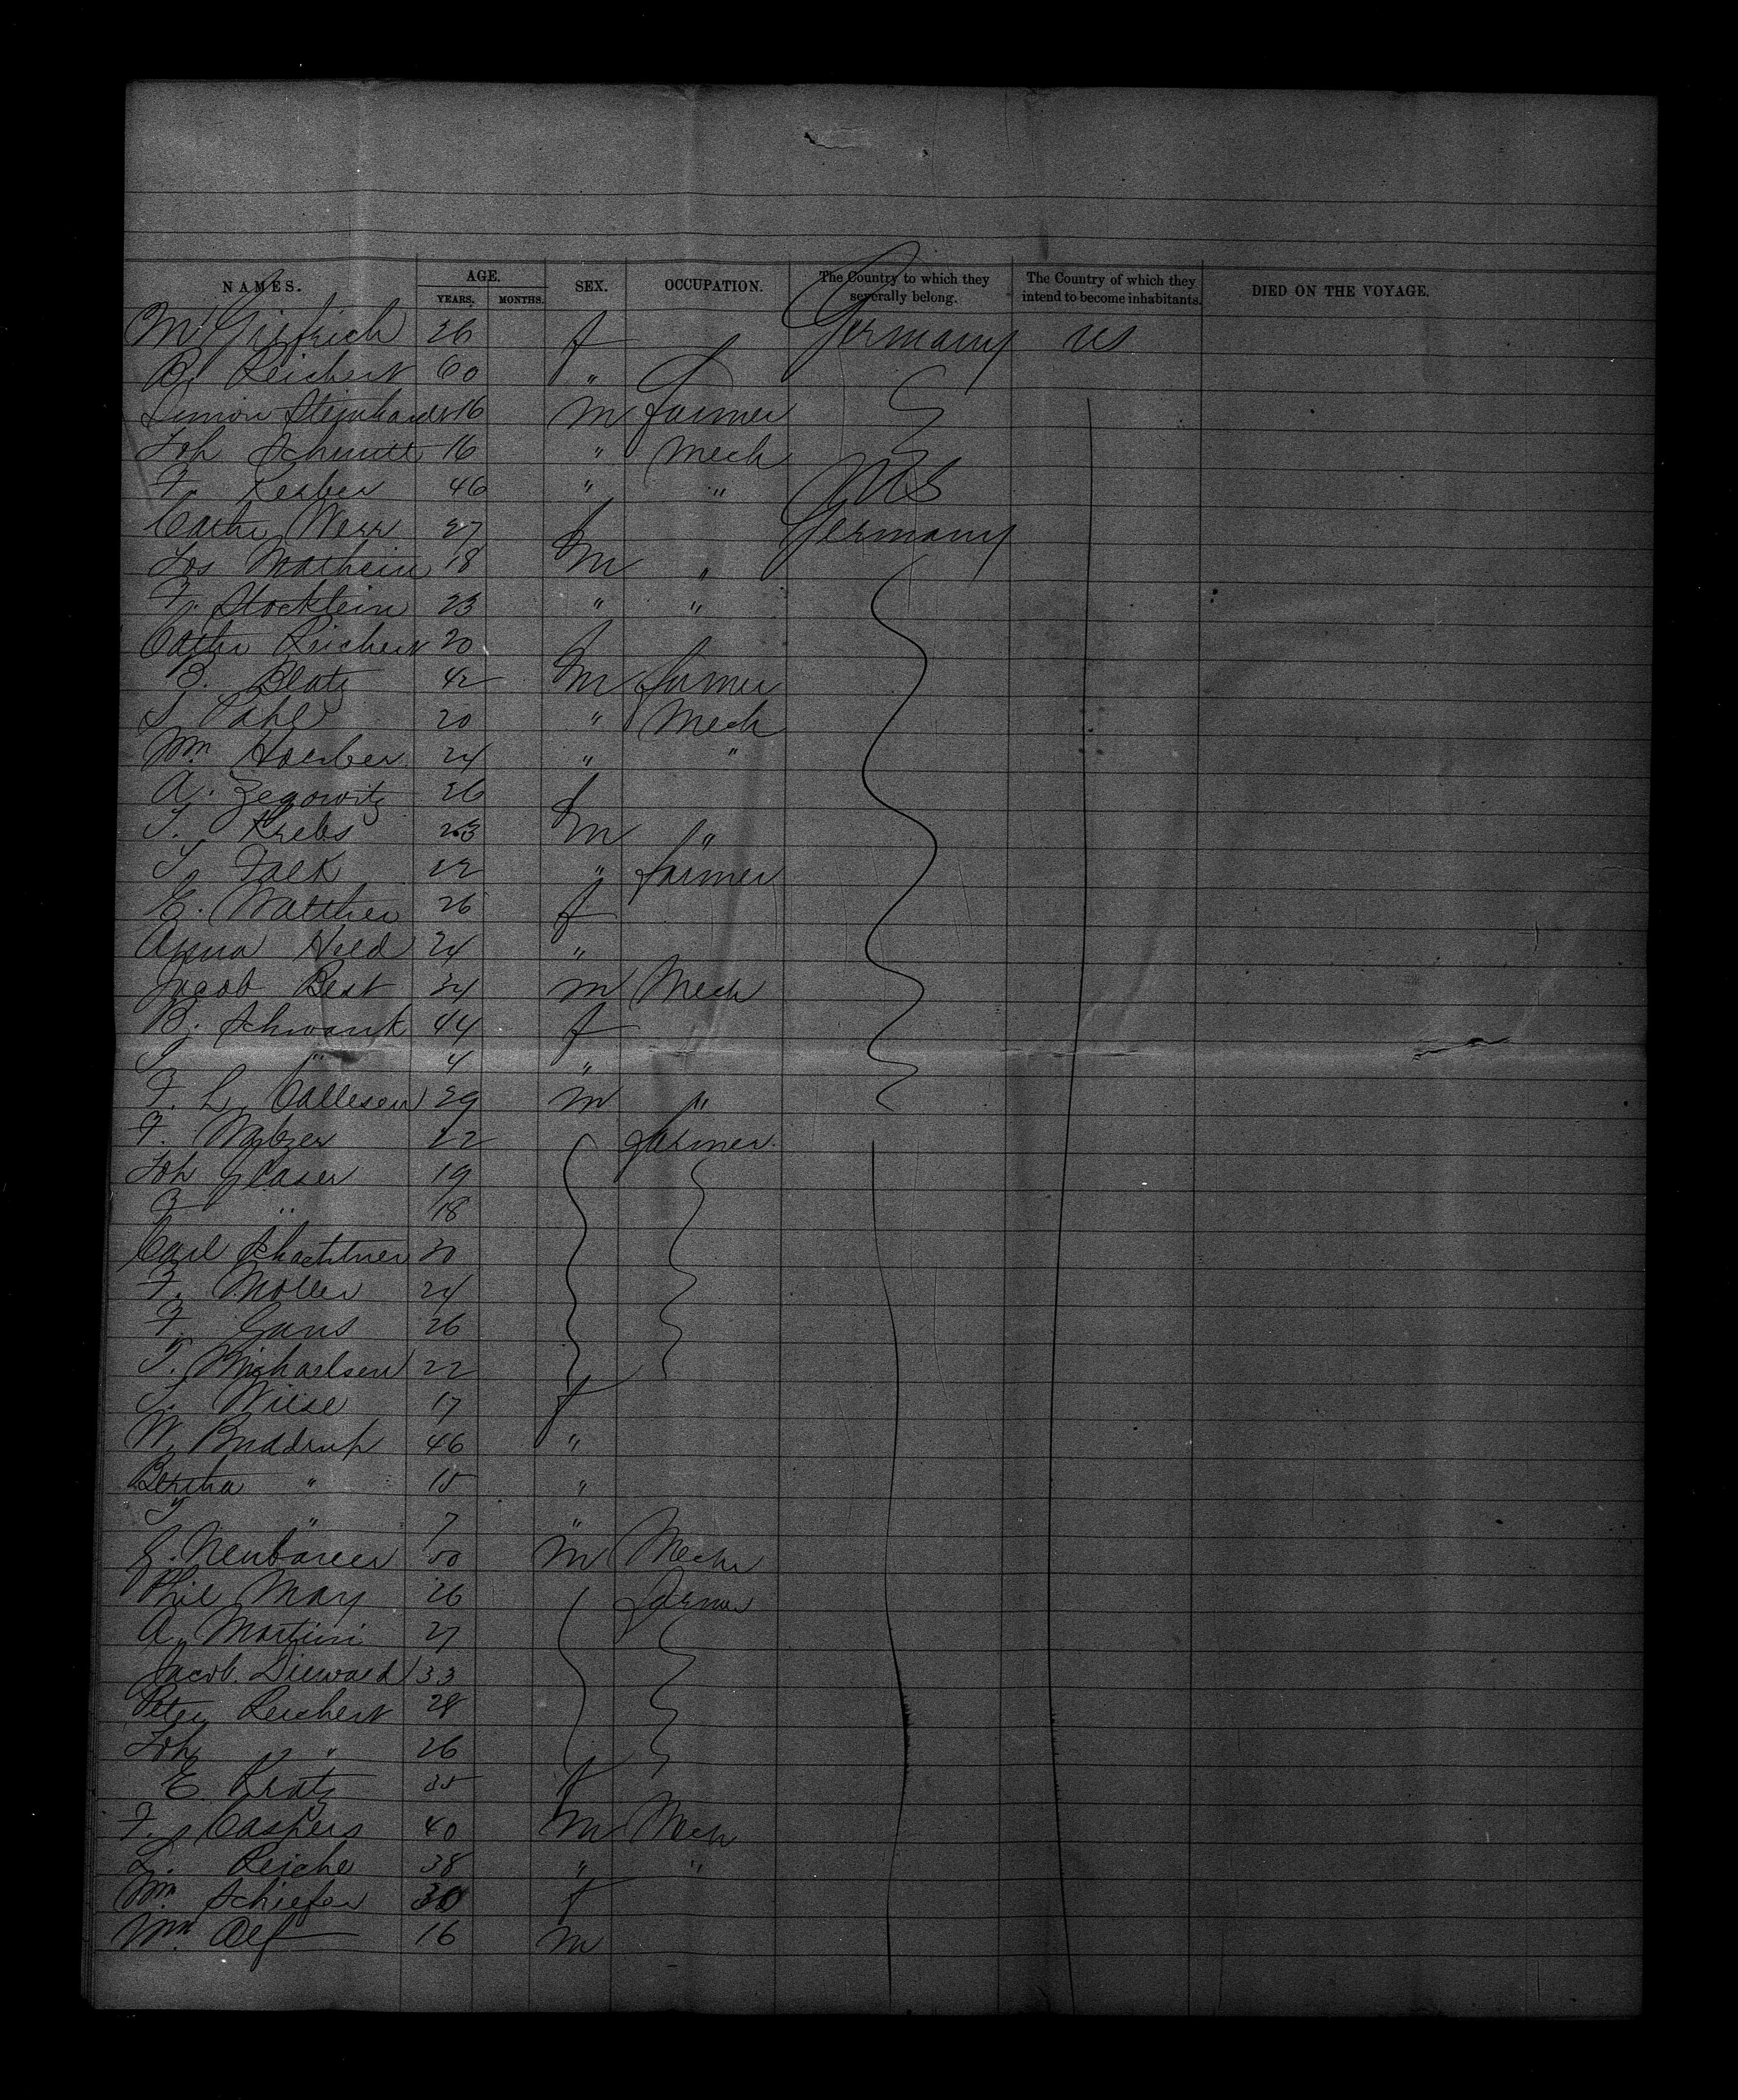 NAMES. AGE. SEX. OCCUPATION. The Country to which they severally belong. The Country of which they intend to become inhabitants. DIED ON THE VOYAGE.
YEARS. MONTHS.
M 26 f Germany US
B. Reichert 60 "
Simon Steinhardt 16 m farmer
Joh Schmitt 16 " Mech
F. Kerber 46 " " US
Cathr 27 f Germany
Jos Mathein 18 m "
F. Stocklein 23 " "
Cathr Reichert 20 f
B. Blatz 42 m farmer
20 " Mech
Wm Hoerber 24 " "
A. Zegowitz 26 f
T. Krebs 23 m "
Falk 22 " farmer
E. Walther 26 f
Anna Held 24 "
Jacob Best 34 m Mech
B. Schwank 44 f
" 4 "
F. L. Callesen 29 m "
F. 22 farmer
Joh Glaser 19
F. " 18
Carl Schachtner 30
F. Moller 24
F. Gans 26
T. Michaelsen 22
Wiese 17 f
W. Buddrup 46 "
Bertha " 15 "
" 7 "
G. Neubauer 50 m Mech
Phil May 26 farmer
A. Martini 27
Jacob Diewald 33
Peter Reichert 28
Joh " 26
E. Kratz 35 f
F. Caspers 40 m Mech
L. Reiche 38 " "
Wm Schiefer 30 f
Wm Alf 16 m